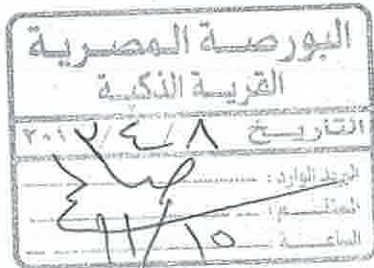 البورصة المصرية
القرية الذكية
التاريخ ٨/٤/٢٠١٢
البريد الوارد :
المستلم :
الساعة ١١/١٥